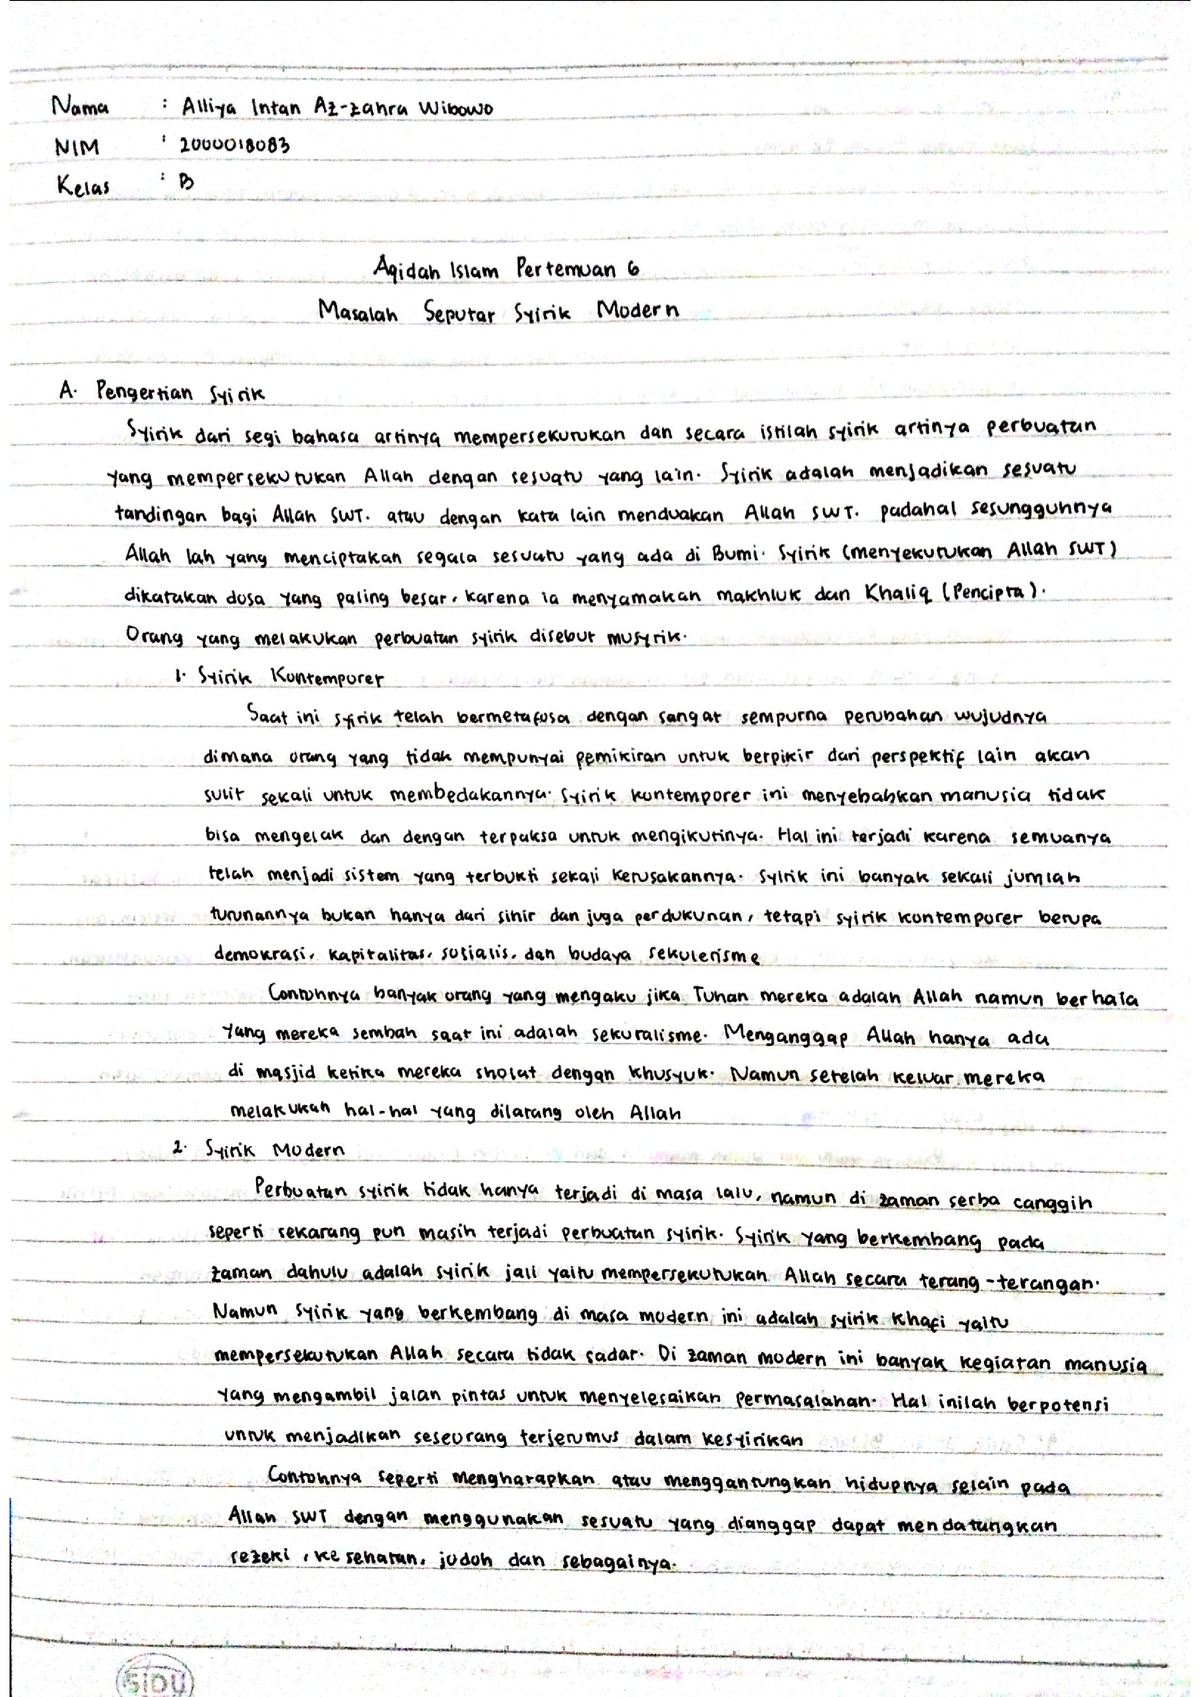 Nama : Alliya Intan Az-zahra Wibowo
NIM : 2000018083
Kelas : B
Aqidah Islam Pertemuan 6
Masalah Seputar Syirik Modern
A. Pengertian Syirik
Syirik dari segi bahasa artinya mempersekutukan dan secara istilah syirik artinya perbuatan
yang mempersekutukan Allah dengan sesuatu yang lain. Syirik adalah menjadikan sesuatu
tandingan bagi Allah SWT. atau dengan kata lain menduakan Allah SWT. padahal sesungguhnya
Allah lah yang menciptakan segala sesuatu yang ada di Bumi. Syirik (menyekutukan Allah SWT)
dikatakan dosa yang paling besar, karena ia menyamakan makhluk dan Khaliq (Pencipta).
Orang yang melakukan perbuatan syirik disebut musyrik.
1. Syirik Kontemporer
Saat ini syirik telah bermetafosa dengan sangat sempurna perubahan wujudnya
dimana orang yang tidak mempunyai pemikiran untuk berpikir dari perspektif lain akan
sulit sekali untuk membedakannya. Syirik kontemporer ini menyebabkan manusia tidak
bisa mengelak dan dengan terpaksa untuk mengikutinya. Hal ini terjadi karena semuanya
telah menjadi sistem yang terbukti sekali kerusakannya. Syirik ini banyak sekali jumlah
turunannya bukan hanya dari sihir dan juga perdukunan, tetapi syirik kontemporer berupa
demokrasi, kapitalitas, sosialis, dan budaya sekulerisme
Contohnya banyak orang yang mengaku jika Tuhan mereka adalah Allah namun berhala
yang mereka sembah saat ini adalah sekuralisme. Menganggap Allah hanya ada
di masjid ketika mereka sholat dengan khusyuk. Namun setelah keluar mereka
melakukan hal-hal yang dilarang oleh Allah
2. Syirik Modern
Perbuatan syirik tidak hanya terjadi di masa lalu, namun di zaman serba canggih
seperti sekarang pun masih terjadi perbuatan syirik. Syirik yang berkembang pada
zaman dahulu adalah syirik jali yaitu mempersekutukan Allah secara terang-terangan.
Namun syirik yang berkembang di masa modern ini adalah syirik khafi yaitu
mempersekutukan Allah secara tidak sadar. Di zaman modern ini banyak kegiatan manusia
yang mengambil jalan pintas untuk menyelesaikan permasalahan. Hal inilah berpotensi
untuk menjadikan seseorang terjerumus dalam kesyirikan
Contohnya seperti mengharapkan atau menggantungkan hidupnya selain pada
Allah SWT dengan menggunakan sesuatu yang dianggap dapat mendatungkan
rezeki, kesehatan, jodoh dan sebagainya.
SIDU